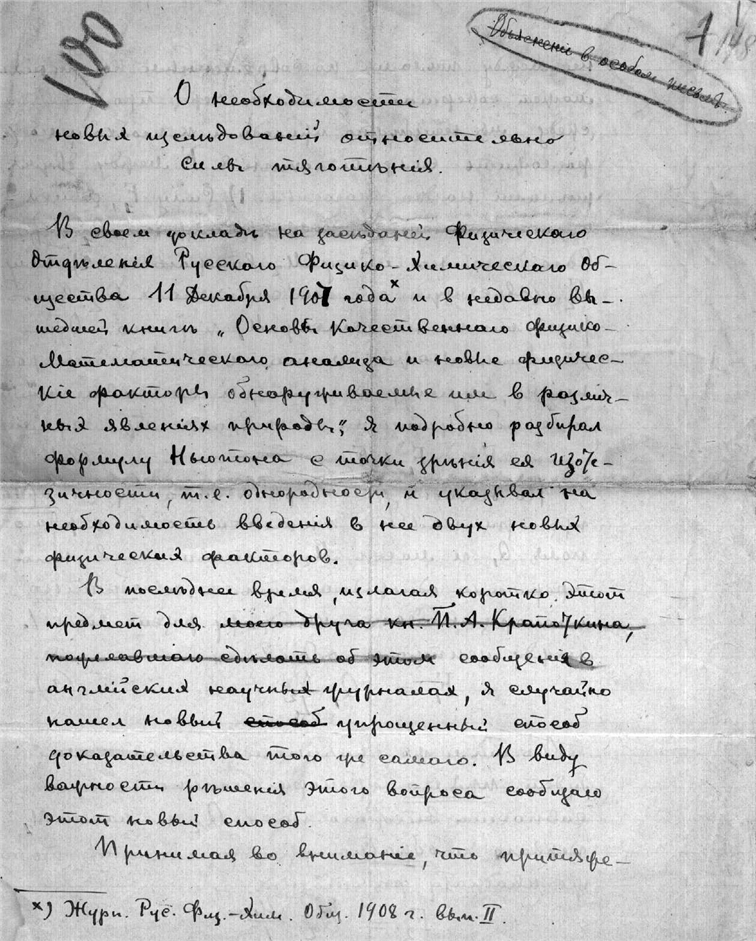 100
Объясненія в особом письмѣ.
1
148
О необходимости
новых изслѣдованій относительно
силы тяготѣнія.
В своем докладѣ на засѣданіи Физическаго
Отдѣленія Русскаго Физико-Химическаго Об-
щества 11 Декабря 1907 года x и в недавно вы-
шедшей книгѣ „Основы качественнаго физико-
математическаго анализа и новые физичес-
кіе факторы обнаруживаемые им в различ-
ных явленіях природы", я подробно разбирал
формулу Ньютона с точки зрѣнія ея изофи-
зичности, т.е. однородности, и указывал на
необходимость введенія в нее двух новых
физических факторов.
В послѣднее время, излагая коротко этот
предмет для моего друга кн. П. А. Крапоткина,
пожелавшаго сдѣлать об этом сообщенія в
англійских научных журналах, я случайно
нашел новый способ упрощенный способ
доказательства того же самаго. В виду
важности рѣшенія этого вопроса сообщаю
этот новый способ.
Принимая во вниманіе, что притяже-
x) Журн. Рус. Физ.-Хим. Общ. 1908 г. вып. II.